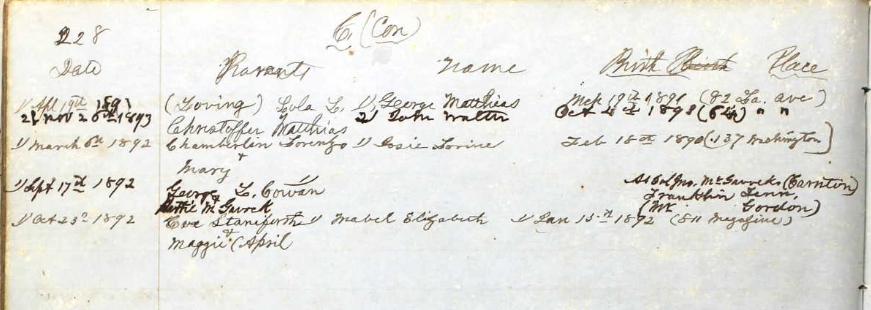 228 C (Con)
Date Parents Name Birth Birth Place
1) Apl 19th 1891 (Loving) Lola L. 1) George Matthias Mch 19th 1891 (82 La. ave)
2) Nov 26th 1893 Christoffer Matthias 2) John Walter Oct 4th 1893 (6th) " "
1) March 6th 1892 Chamberlin Lorenzo 1) Josie Lorine Feb 18th 1890 (137 Washington)
+ Mary
1) Sept 17th 1892 George L. Cowan At Col Jno. McGavocks (Carnton)
Hattie McGavock Franklin Tenn.
(Mr Gordon)
1) Oct 23d 1892 Eve Staneforth 1) Mabel Elizabeth 1) Jan 15th 1892 (811 Magazine)
+
Maggie (April